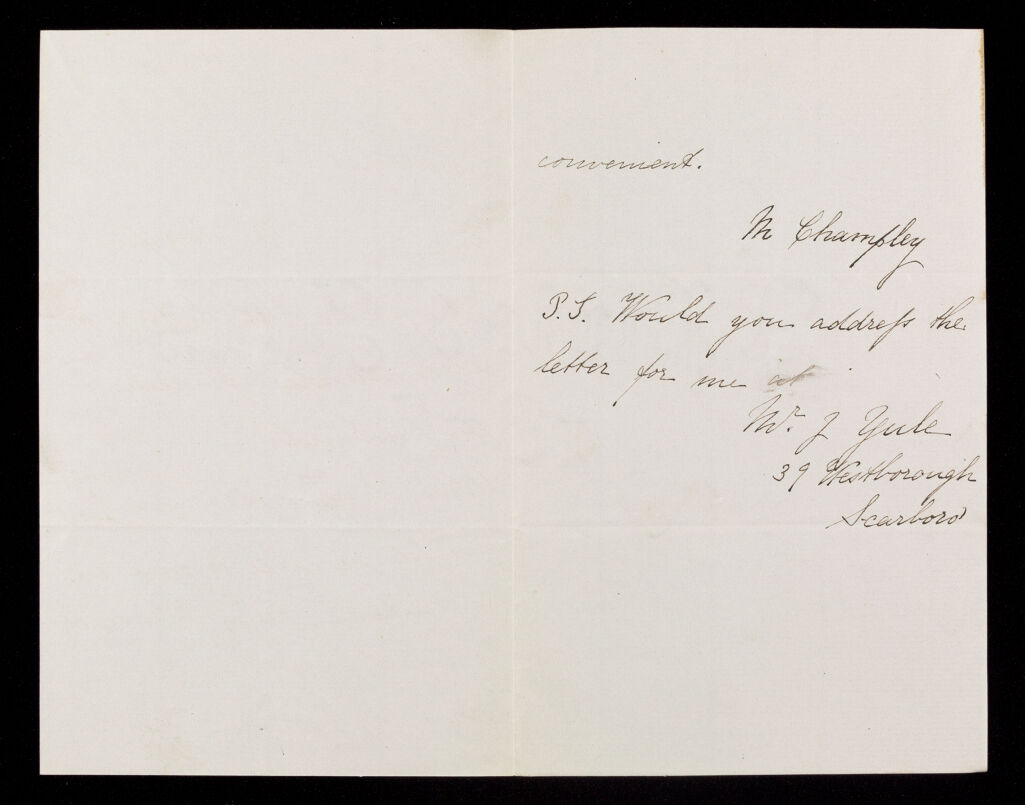 convenient.
M Champley
P.S. Would you addreſs the
letter for me at
Mr. J Yule
39 Westborough
Scarboro'